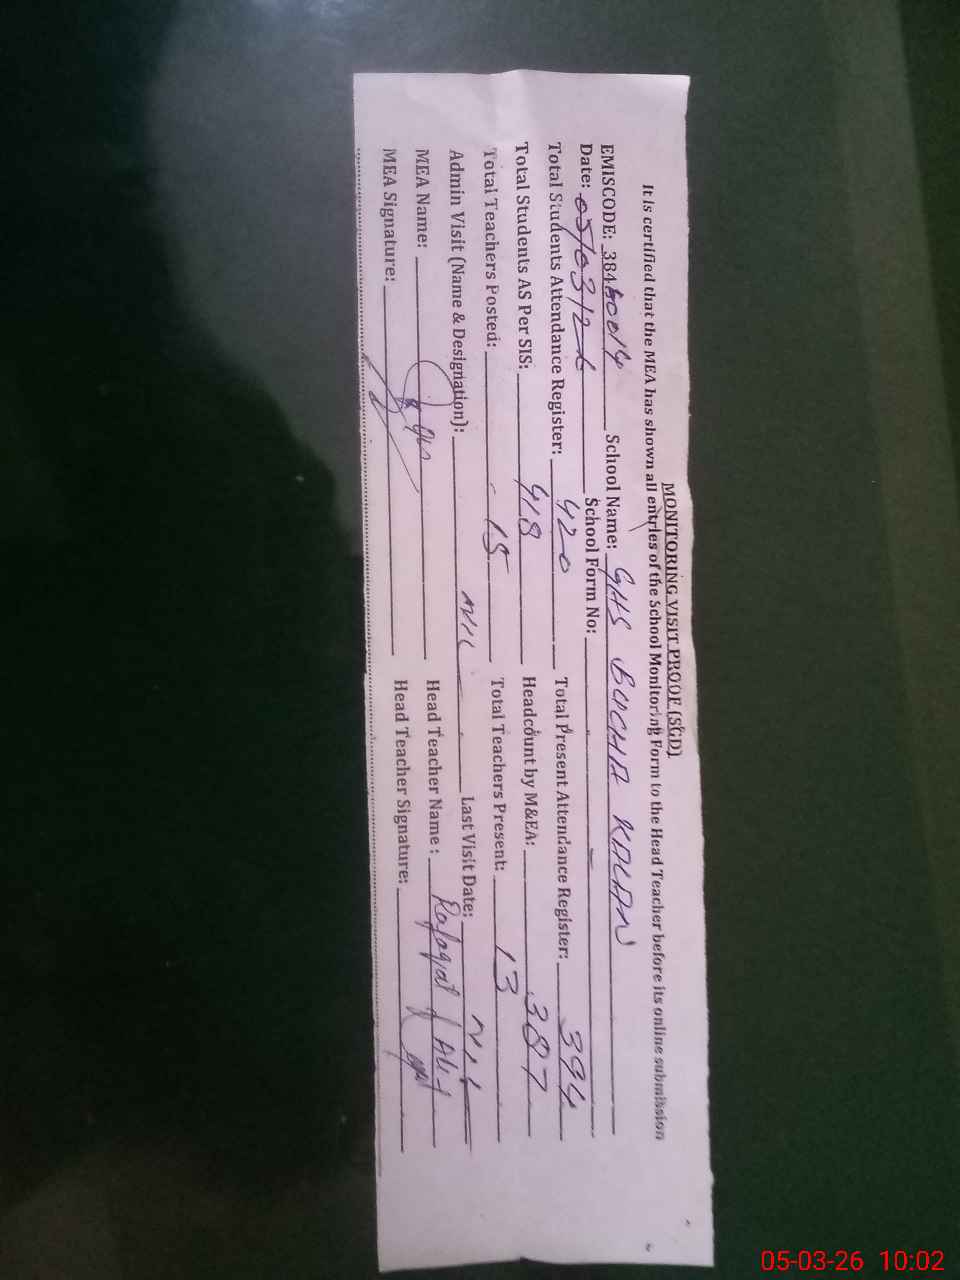 MONITORING VISIT PROOF (SGD)
It is certified that the MEA has shown all entries of the School Monitoring Form to the Head Teacher before its online submission
EMISCODE: 384 School Name: GHS BUCHA KALAN
Date: 05/03/26 School Form No:
Total Students Attendance Register: 420 Total Present Attendance Register: 394
Total Students AS Per SIS: 418 Headcount by M&EA: 387
Total Teachers Posted: 15 Total Teachers Present: 13
Admin Visit (Name & Designation): NIL Last Visit Date: NIL
MEA Name: Head Teacher Name: Rafaqat Ali
MEA Signature: Head Teacher Signature:
05-03-26 10:02